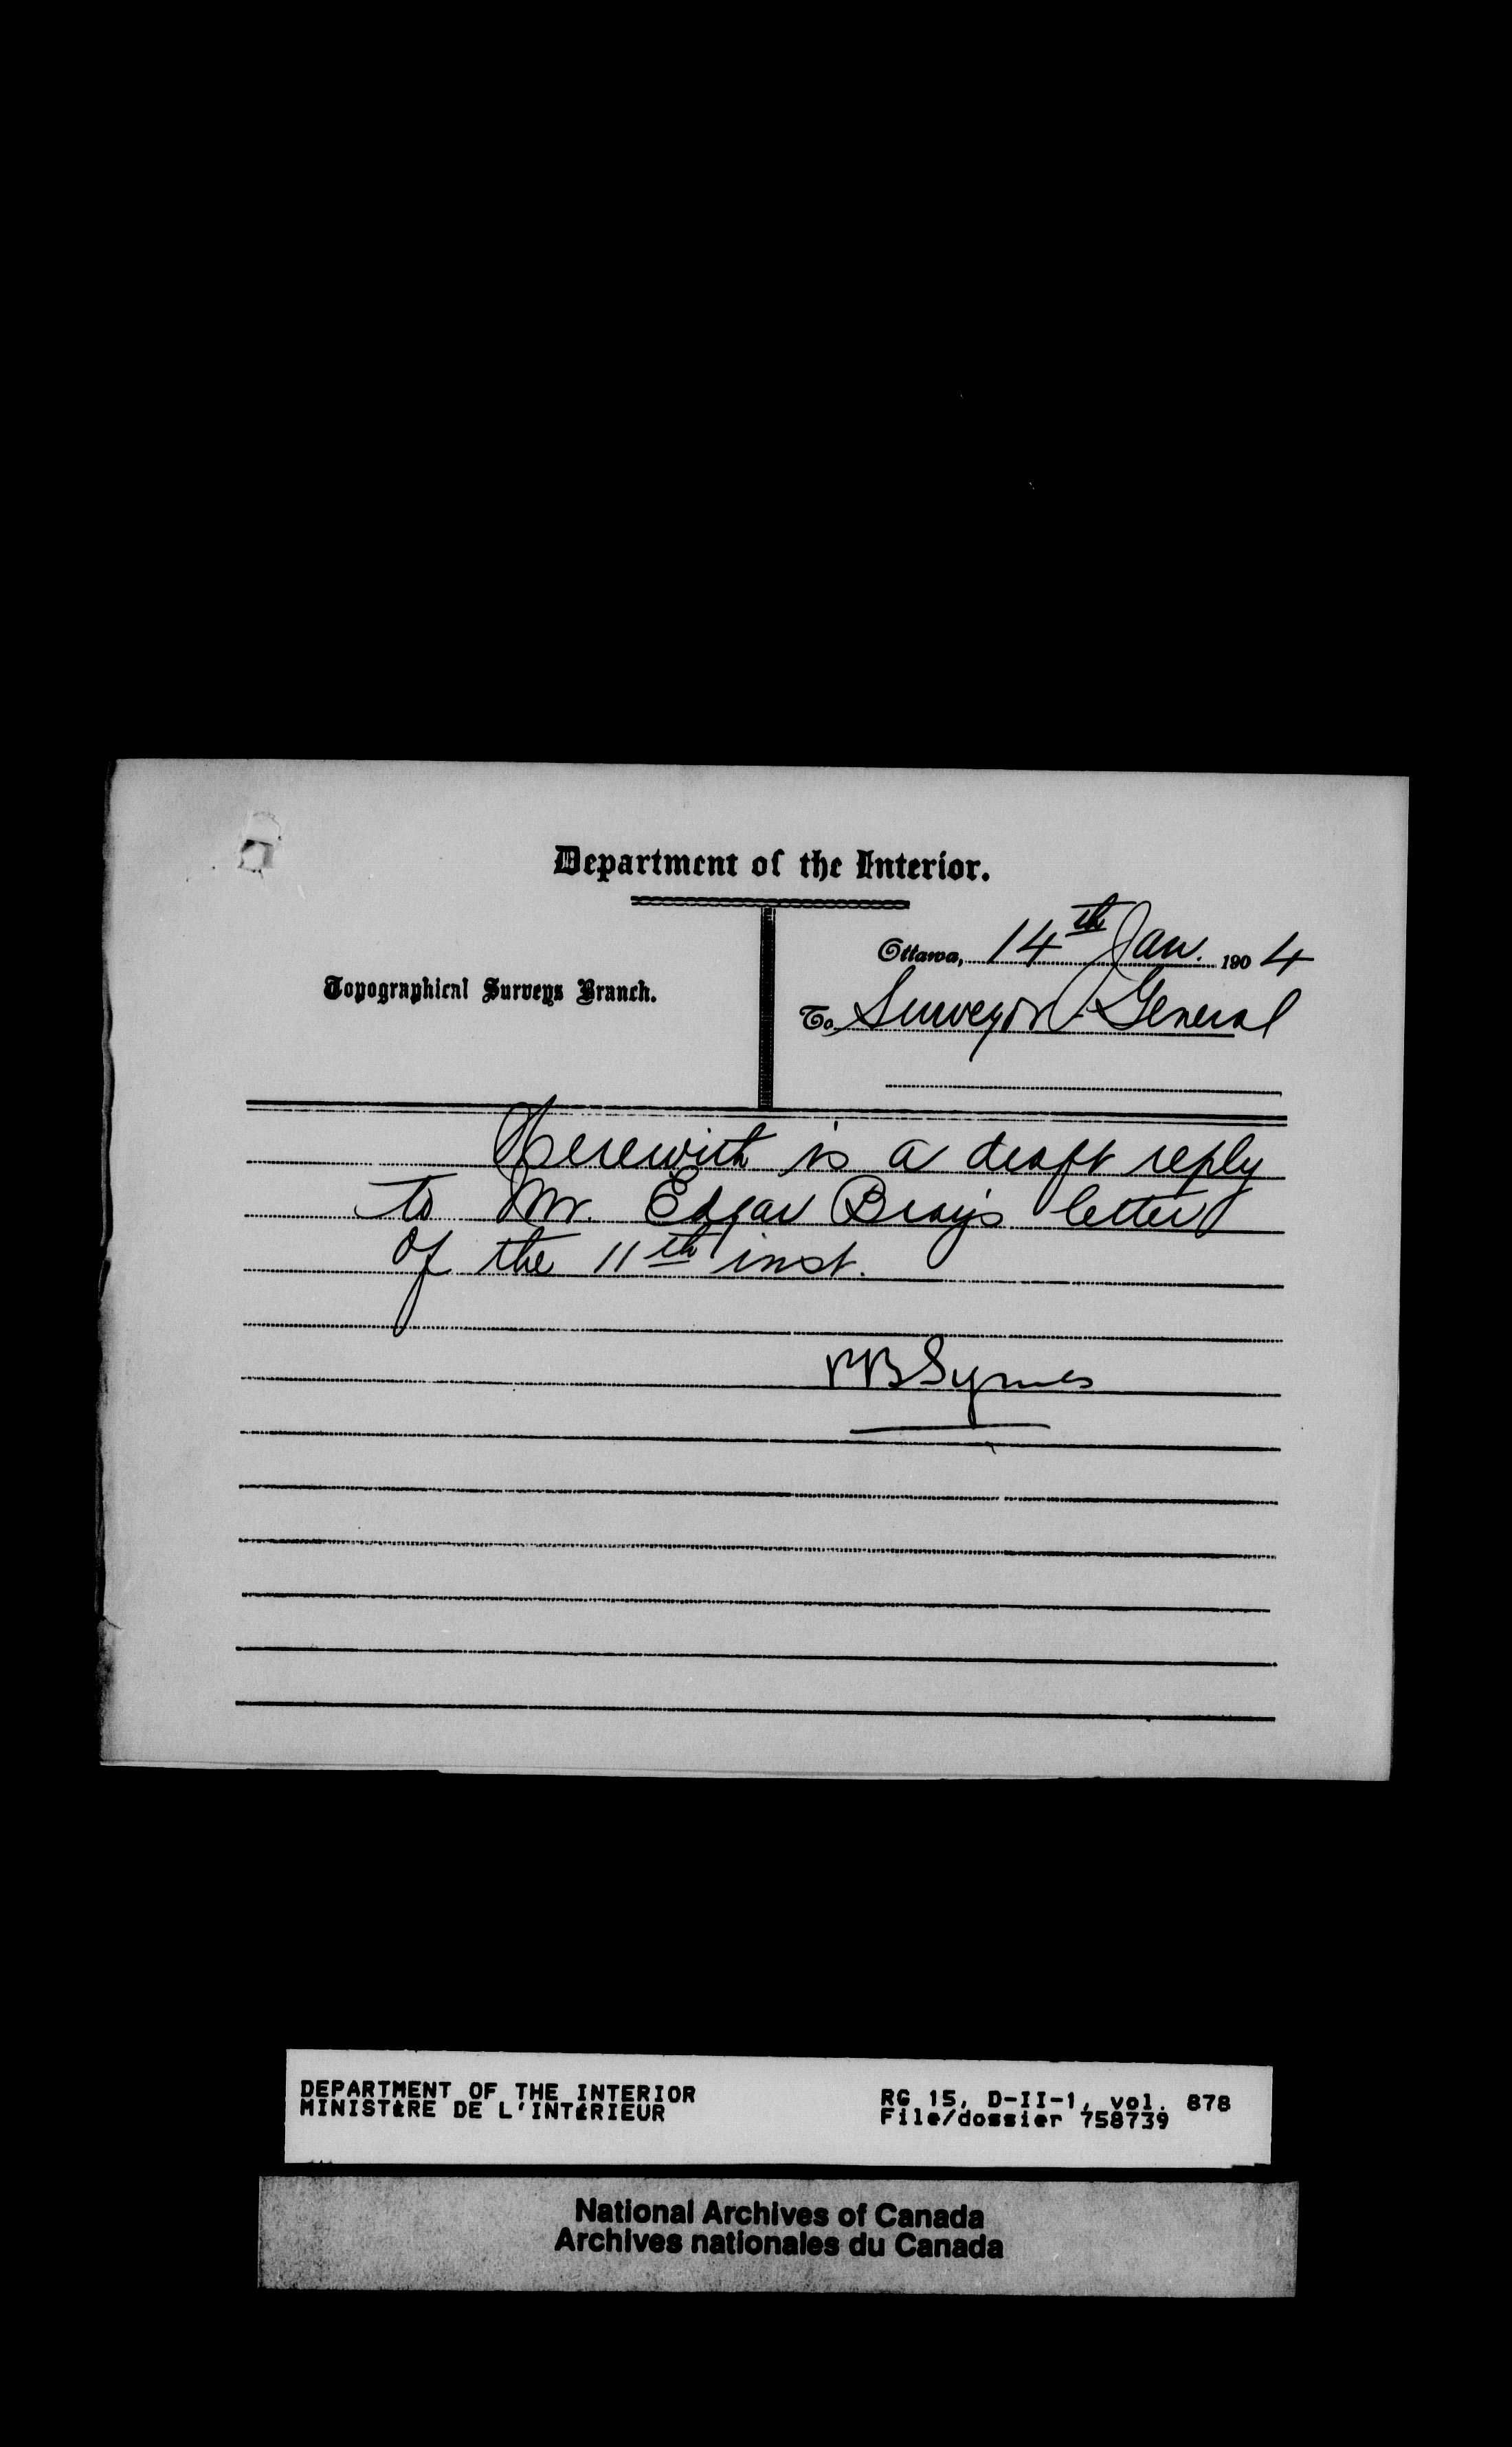 Department of the Interior.
Topographical Surveys Branch.
Ottawa, 14th Jan. 1904
To Surveyor General
Herewith is a draft reply
to Mr. Edgar Bray's letter
of the 11th inst.
PBSymes
DEPARTMENT OF THE INTERIOR
MINISTÈRE DE L'INTÉRIEUR
RG 15, D-II-1, vol. 878
File/dossier 758739
National Archives of Canada
Archives nationales du Canada